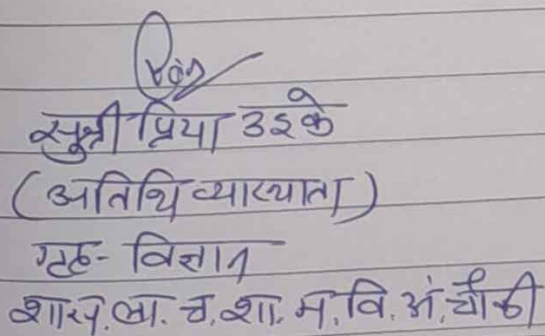 सुश्री प्रिया उइके
(अतिथि व्याख्याता)
गृह- विज्ञान
शास. ला. च. शा. म. वि. अं. चौकी